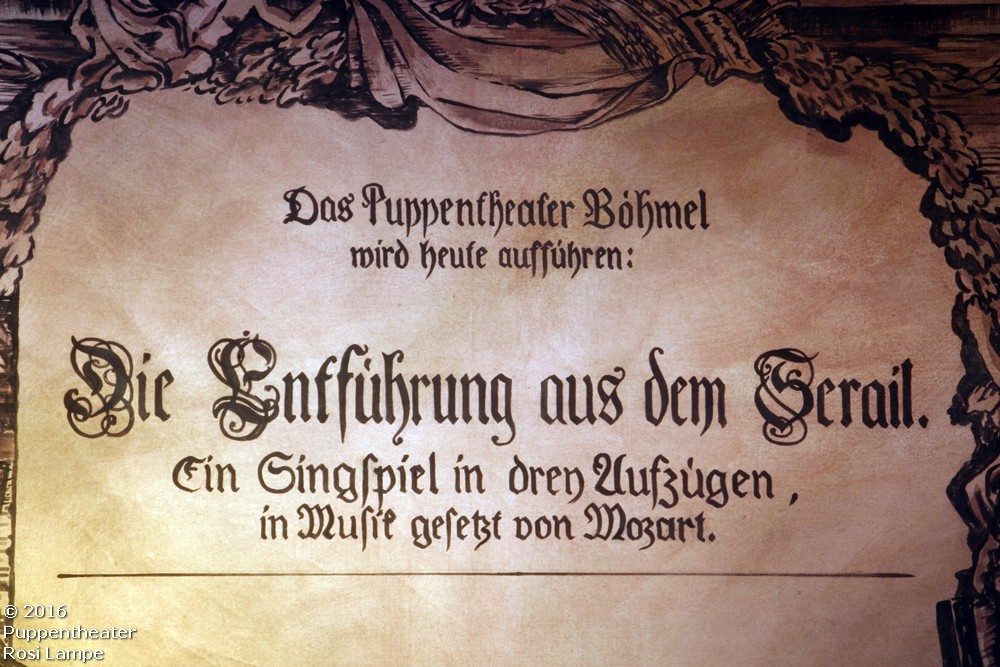 Das Puppentheater Böhmel
wird heute aufführen:
Die Entführung aus dem Serail.
Ein Singspiel in drey Aufzügen,
in Musik gesetzt von Mozart.
© 2016
Puppentheater
Rosi Lampe